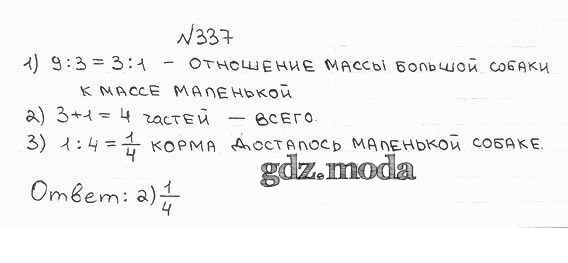 №337
1) 9:3 = 3:1 – ОТНОШЕНИЕ МАССЫ БОЛЬШОЙ СОБАКИ
К МАССЕ МАЛЕНЬКОЙ
2) 3+1 = 4 ЧАСТЕЙ – ВСЕГО.
3) 1:4 = 1/4 КОРМА ДОСТАЛОСЬ МАЛЕНЬКОЙ СОБАКЕ.
gdz.moda
Ответ: 2) 1/4